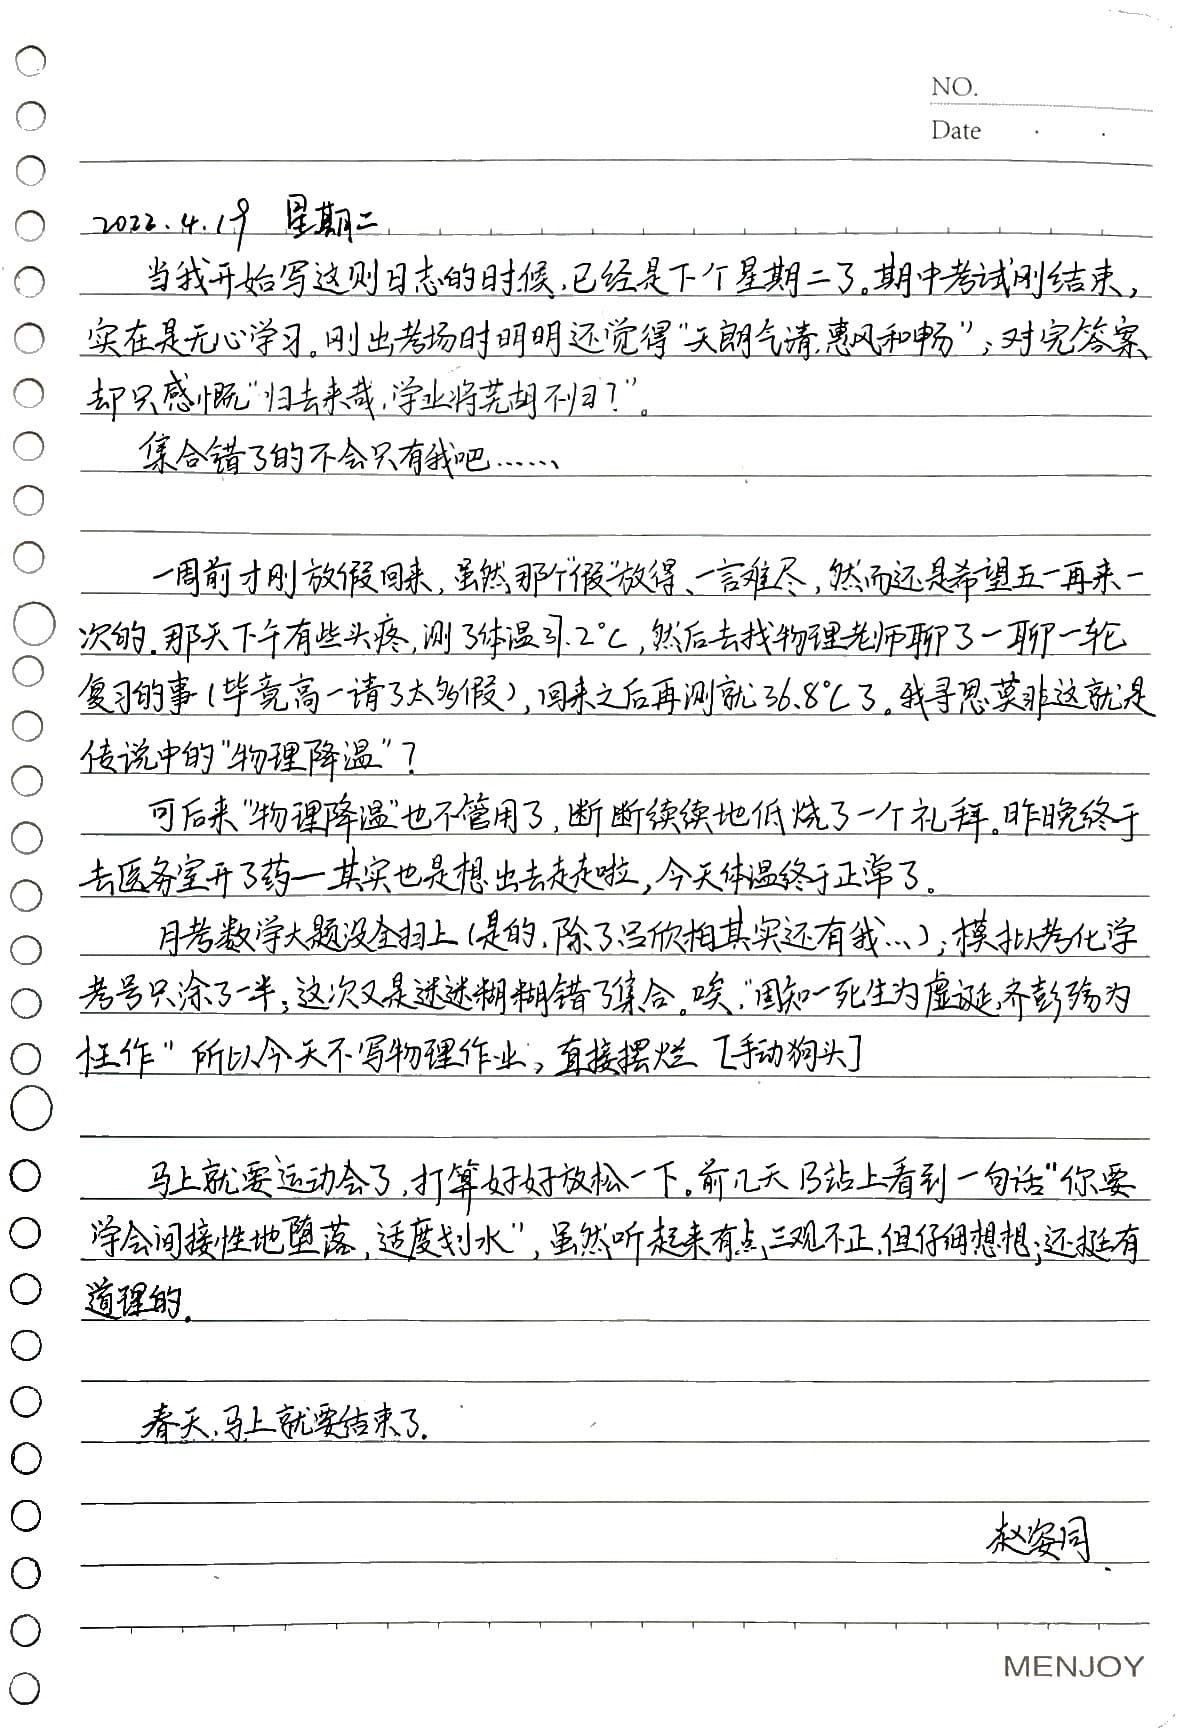 NO.
Date . .
2022.4.19 星期二
当我开始写这则日志的时候,已经是下个星期二了。期中考试刚结束,
实在是无心学习。刚出考场时明明还觉得“天朗气清,惠风和畅”;对完答案
却只感慨“归去来哉,学业将芜胡不归?”。
集合错了的不会只有我吧……
一周前才刚放假回来,虽然那个“假”放得、一言难尽,然而还是希望五一再来一
次的.那天下午有些头疼,测了体温37.2°C,然后去找物理老师聊了一聊一轮
复习的事(毕竟高一请了太多假),回来之后再测就36.8°C了。我寻思莫非这就是
传说中的“物理降温”?
可后来“物理降温”也不管用了,断断续续地低烧了一个礼拜。昨晚终于
去医务室开了药—其实也是想出去走走啦,今天体温终于正常了。
月考数学大题没全扫上(是的,除了吕欣柏其实还有我…);模拟考化学
考号只涂了一半;这次又是迷迷糊糊错了集合。唉,“固知一死生为虚诞,齐彭殇为
枉作” 所以今天不写物理作业,直接摆烂 [手动狗头]
马上就要运动会了,打算好好放松一下。前几天B站上看到一句话“你要
学会间接性地堕落,适度划水”,虽然听起来有点三观不正,但仔细想想,还挺有
道理的.
春天,马上就要结束了.
赵姿同.
MENJOY